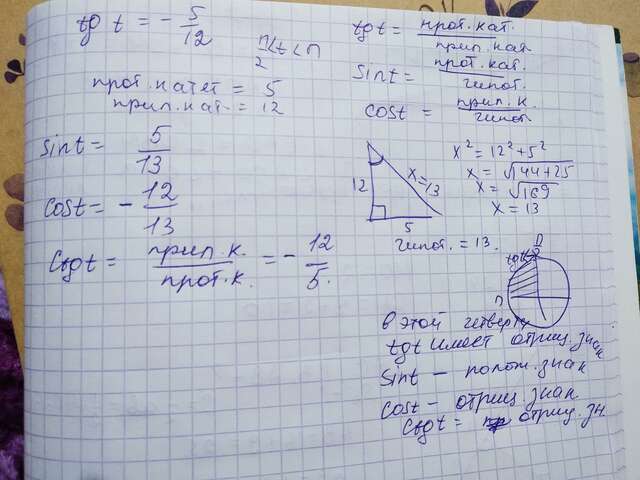 tg t = - 5/12
π/2 < t < π
прот. катет = 5
прил. кат. = 12
sin t = 5/13
cos t = - 12/13
ctg t = прил. к. / прот. к. = - 12/5.
tg t = прот. кат. / прил. кат.
sin t = прот. кат. / гипот.
cos t = прил. к. / гипот.
12
x = 13
5
x² = 12² + 5²
x = √144+25
x = √169
x = 13
гипот. = 13.
π/2
π
в этой четверти
tg t имеет отриц. знак
sin t – полож. знак
cos t – отриц. знак
ctg t = отриц. зн.